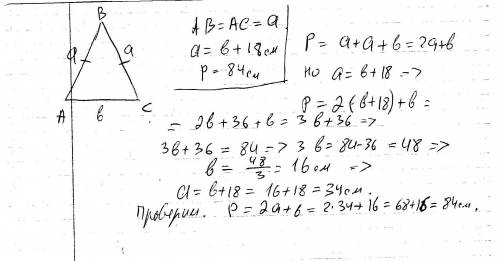 B
a
a
A
в
C
AB = AC = a
a = в + 18 см
P = 84 см
P = a + a + в = 2a + в
но a = в + 18 =>
P = 2(в+18) + в =
= 2в + 36 + в = 3в + 36 =>
3в + 36 = 84 => 3в = 84 - 36 = 48 =>
в = 48/3 = 16 см =>
a = в + 18 = 16 + 18 = 34 см.
Проверим. P = 2a + в = 2·34 + 16 = 68 + 16 = 84 см.